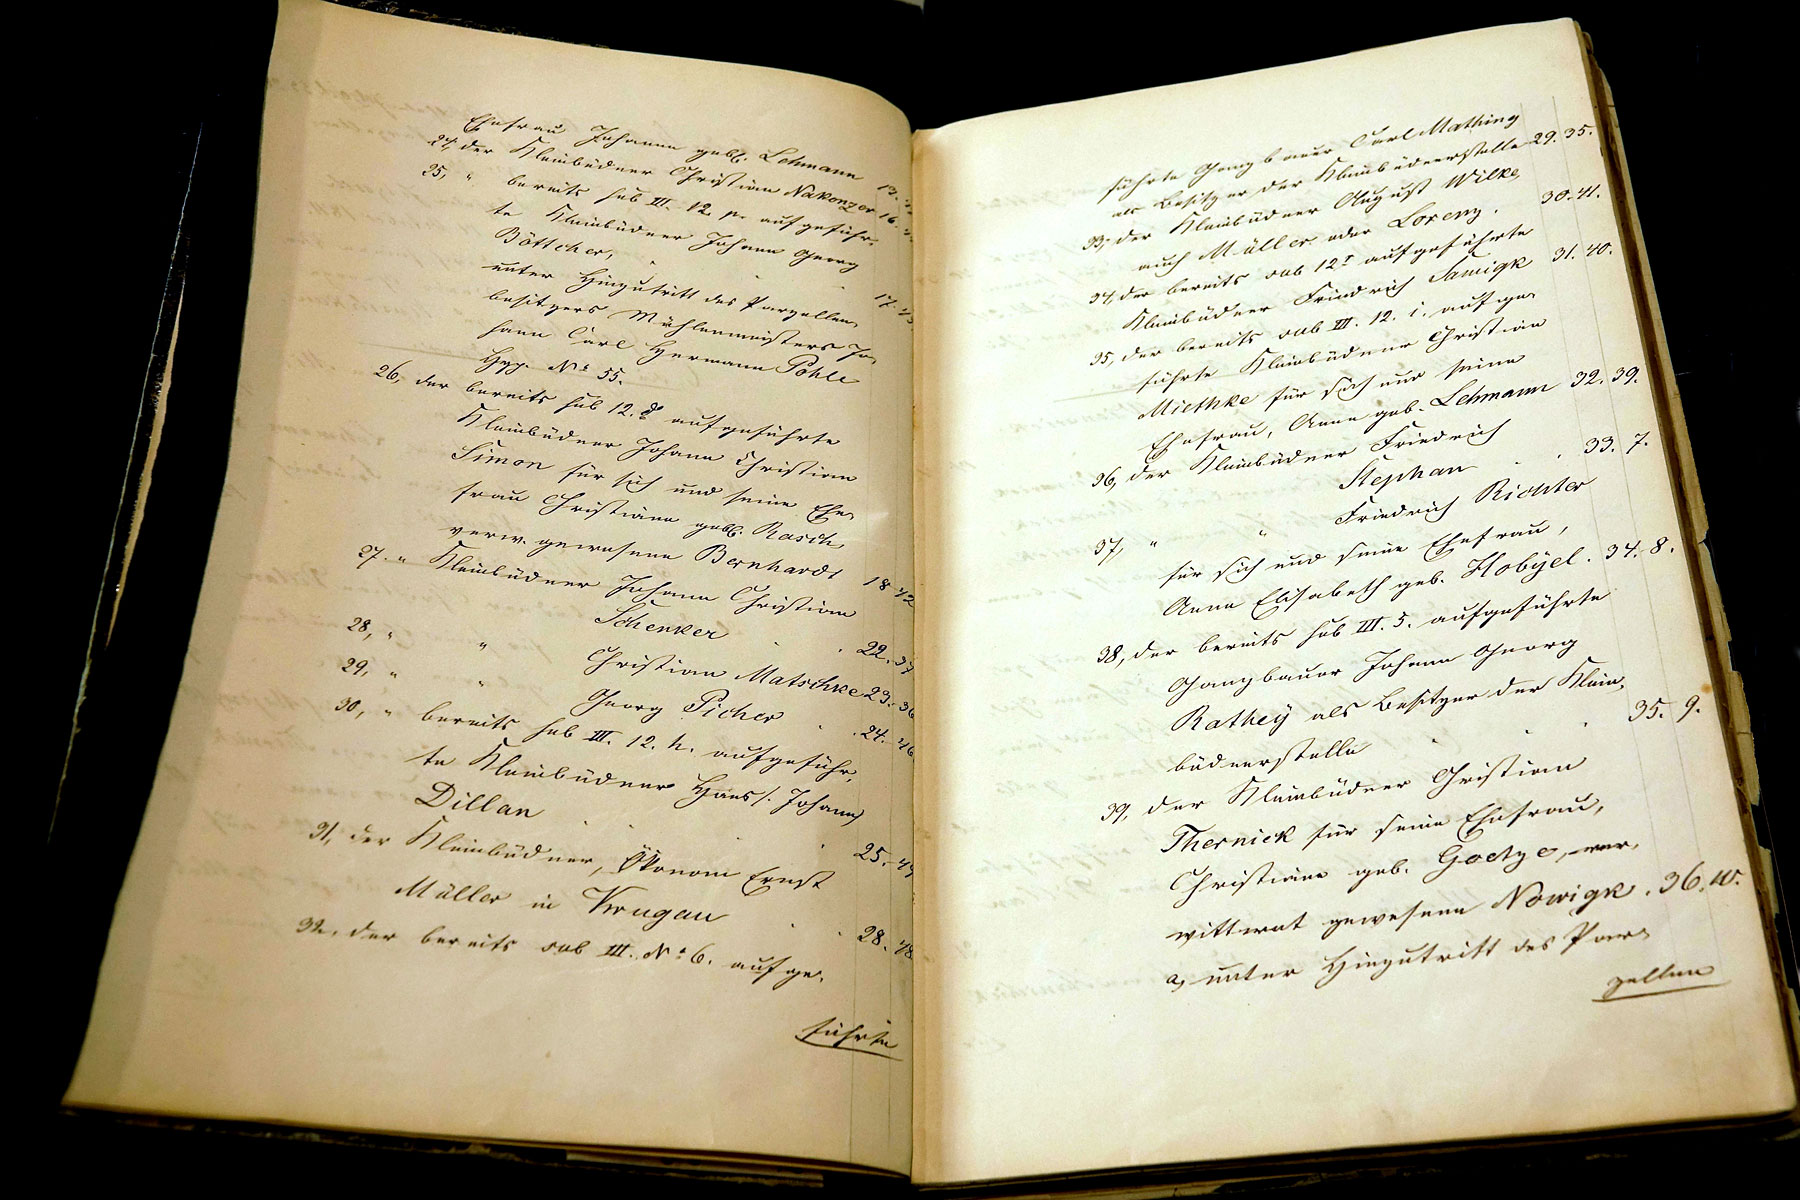 Ehefrau Johanne gebh. Lehmann 13.
24, der Kleinbüdner Christian Nakonzer 16.
25, " bereits sub III. 12. p. aufgeführ-
te Kleinbüdner Johann Georg
Böttcher,
unter Hinzutritt des Parzellen- 17.
besitzers Mühlenmeisters Jo-
hann Carl Hermann Pohle
Hyp. No 55.
26, der bereits sub 12. aufgeführte
Kleinbüdner Johann Christian
Simon für sich und seine Ehe-
frau Christiane gebh. Rasch,
verw. gewesene Bernhardt 18 42
27. " Kleinbüdner Johann Christian
Schenker . . 22. 37
28, " " Christian Matschke 23. 36
29, " " Georg Picher . . 24. 46
30, " bereits sub III. 12. h. aufgeführ-
te Kleinbüdner Hans /. Johann)
Dillan . . . 25.
31, der Kleinbüdner, Ökonom Ernst
Müller in Krugau . . 28. 48
32, der bereits sub III. No 6. aufge-
führte
führte Ganzbauer Carl Mathing
als Besitzer der Kleinbüdnerstelle 29. 35.
33, der Kleinbüdner August Wilke
auch Müller oder Lorenz . 30. 41.
34, der bereits sub 12 aufgeführte
Kleinbüdner Friedrich Samigk 31. 40.
35, der bereits sub III. 12. i. aufge-
führte Kleinbüdner Christian
Miethke für sich und seine
Ehefrau, Anne geb. Lehmann 32. 39.
36, der Kleinbüdner Friedrich
Stephan . . 33. 7.
37, " " Friedrich Richter
für sich und seine Ehefrau,
Anne Elisabeth geb. Hobyel . 34. 8.
38, der bereits sub III. 5. aufgeführte
Ganzbauer Johann Georg
Rathey als Besitzer der Klein-
büdnerstelle . . . 35. 9.
39, der Kleinbüdner Christian
Thernick für seine Ehefrau,
Christiane geb. Goetze, ver-
wittwet gewesene Nowigk . 36. 10.
a, unter Hinzutritt des Par-
zellen